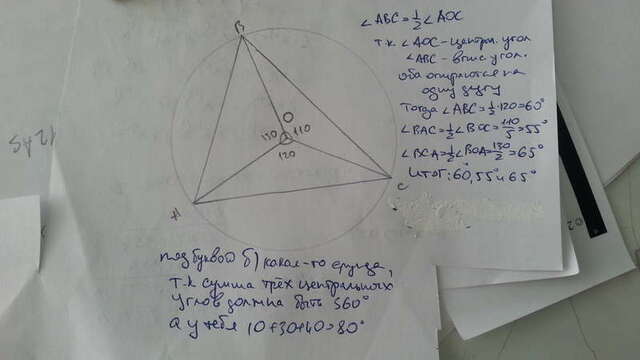 ∠ABC=½∠AOC
т.к ∠AOC-централ. угол
∠ABC-впис угол.
оба опираются на
одну дугу
Тогда ∠ABC=½·120=60°
∠BAC=½∠BOC=110/5=55°
∠BCA=½∠BOA=130/2=65°
Итог: 60, 55 и 65°
B
O
130 110
120
A
C
под буквой б) какая-то ерунда,
т.к сумма трёх центральных
углов должна быть 360°
а у тебя 10+30+40=80°